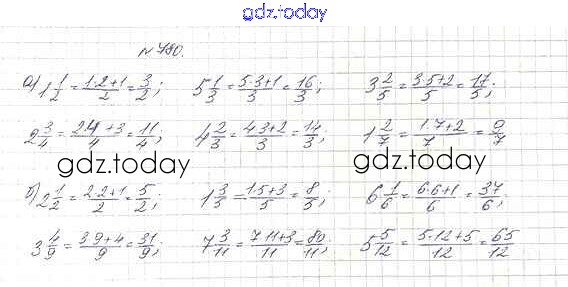 gdz.today
№780.
а) 1 1/2 = (1·2+1)/2 = 3/2; 5 1/3 = (5·3+1)/3 = 16/3; 3 2/5 = (3·5+2)/5 = 17/5;
2 3/4 = (2·4+3)/4 = 11/4; 4 2/3 = (4·3+2)/3 = 14/3; 1 2/7 = (1·7+2)/7 = 9/7
gdz.today gdz.today
б) 2 1/2 = (2·2+1)/2 = 5/2; 1 3/5 = (1·5+3)/5 = 8/5; 6 1/6 = (6·6+1)/6 = 37/6;
3 4/9 = (3·9+4)/9 = 31/9; 7 3/11 = (7·11+3)/11 = 80/11; 5 5/12 = (5·12+5)/12 = 65/12